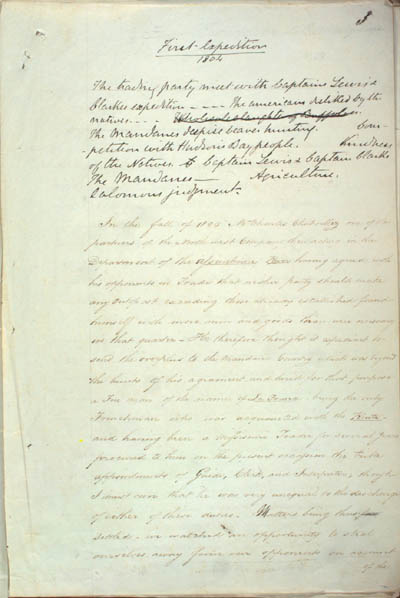 3
First Expedition
1804
The trading party meet with Captains Lewis &
Clarkes expedition - - - - The americans disliked by the
natives - - - Wholesale slaughter of Buffaloes.
The Mandanes despise beaver hunting. Com-
-petition with Hudson's Bay people. Kindness
of the Natives. Captain Lewis & Captain Clarke
The Mandanes — Agriculture.
Solomons judgment.
In the fall of 1804 Mr Charles Chaboillez one of the
partners of the North west Company who resided in the
Department of the Assiniboine River having agreed with
his opponents in Trade that neither party should make
any Outpost exceeding those already established found
himself with more men and goods than were necessary
in that quarter. He therefore thought it expedient to
send the overplus to the Mandan Country which was beyond
the limits of his agreement and hired for that purpose
a Free man of the name of La France being the only
Frenchman who was acquainted with the Route
and having been a Trader for several years
procured to him on the present occasion the triple
appointments of Guide, Clerk, and Interpreter, though
I must own that he was very unequal to the discharge
of either of these duties. Matters being thus
settled - we watched an opportunity to steal
ourselves away from our opponents on account
of the